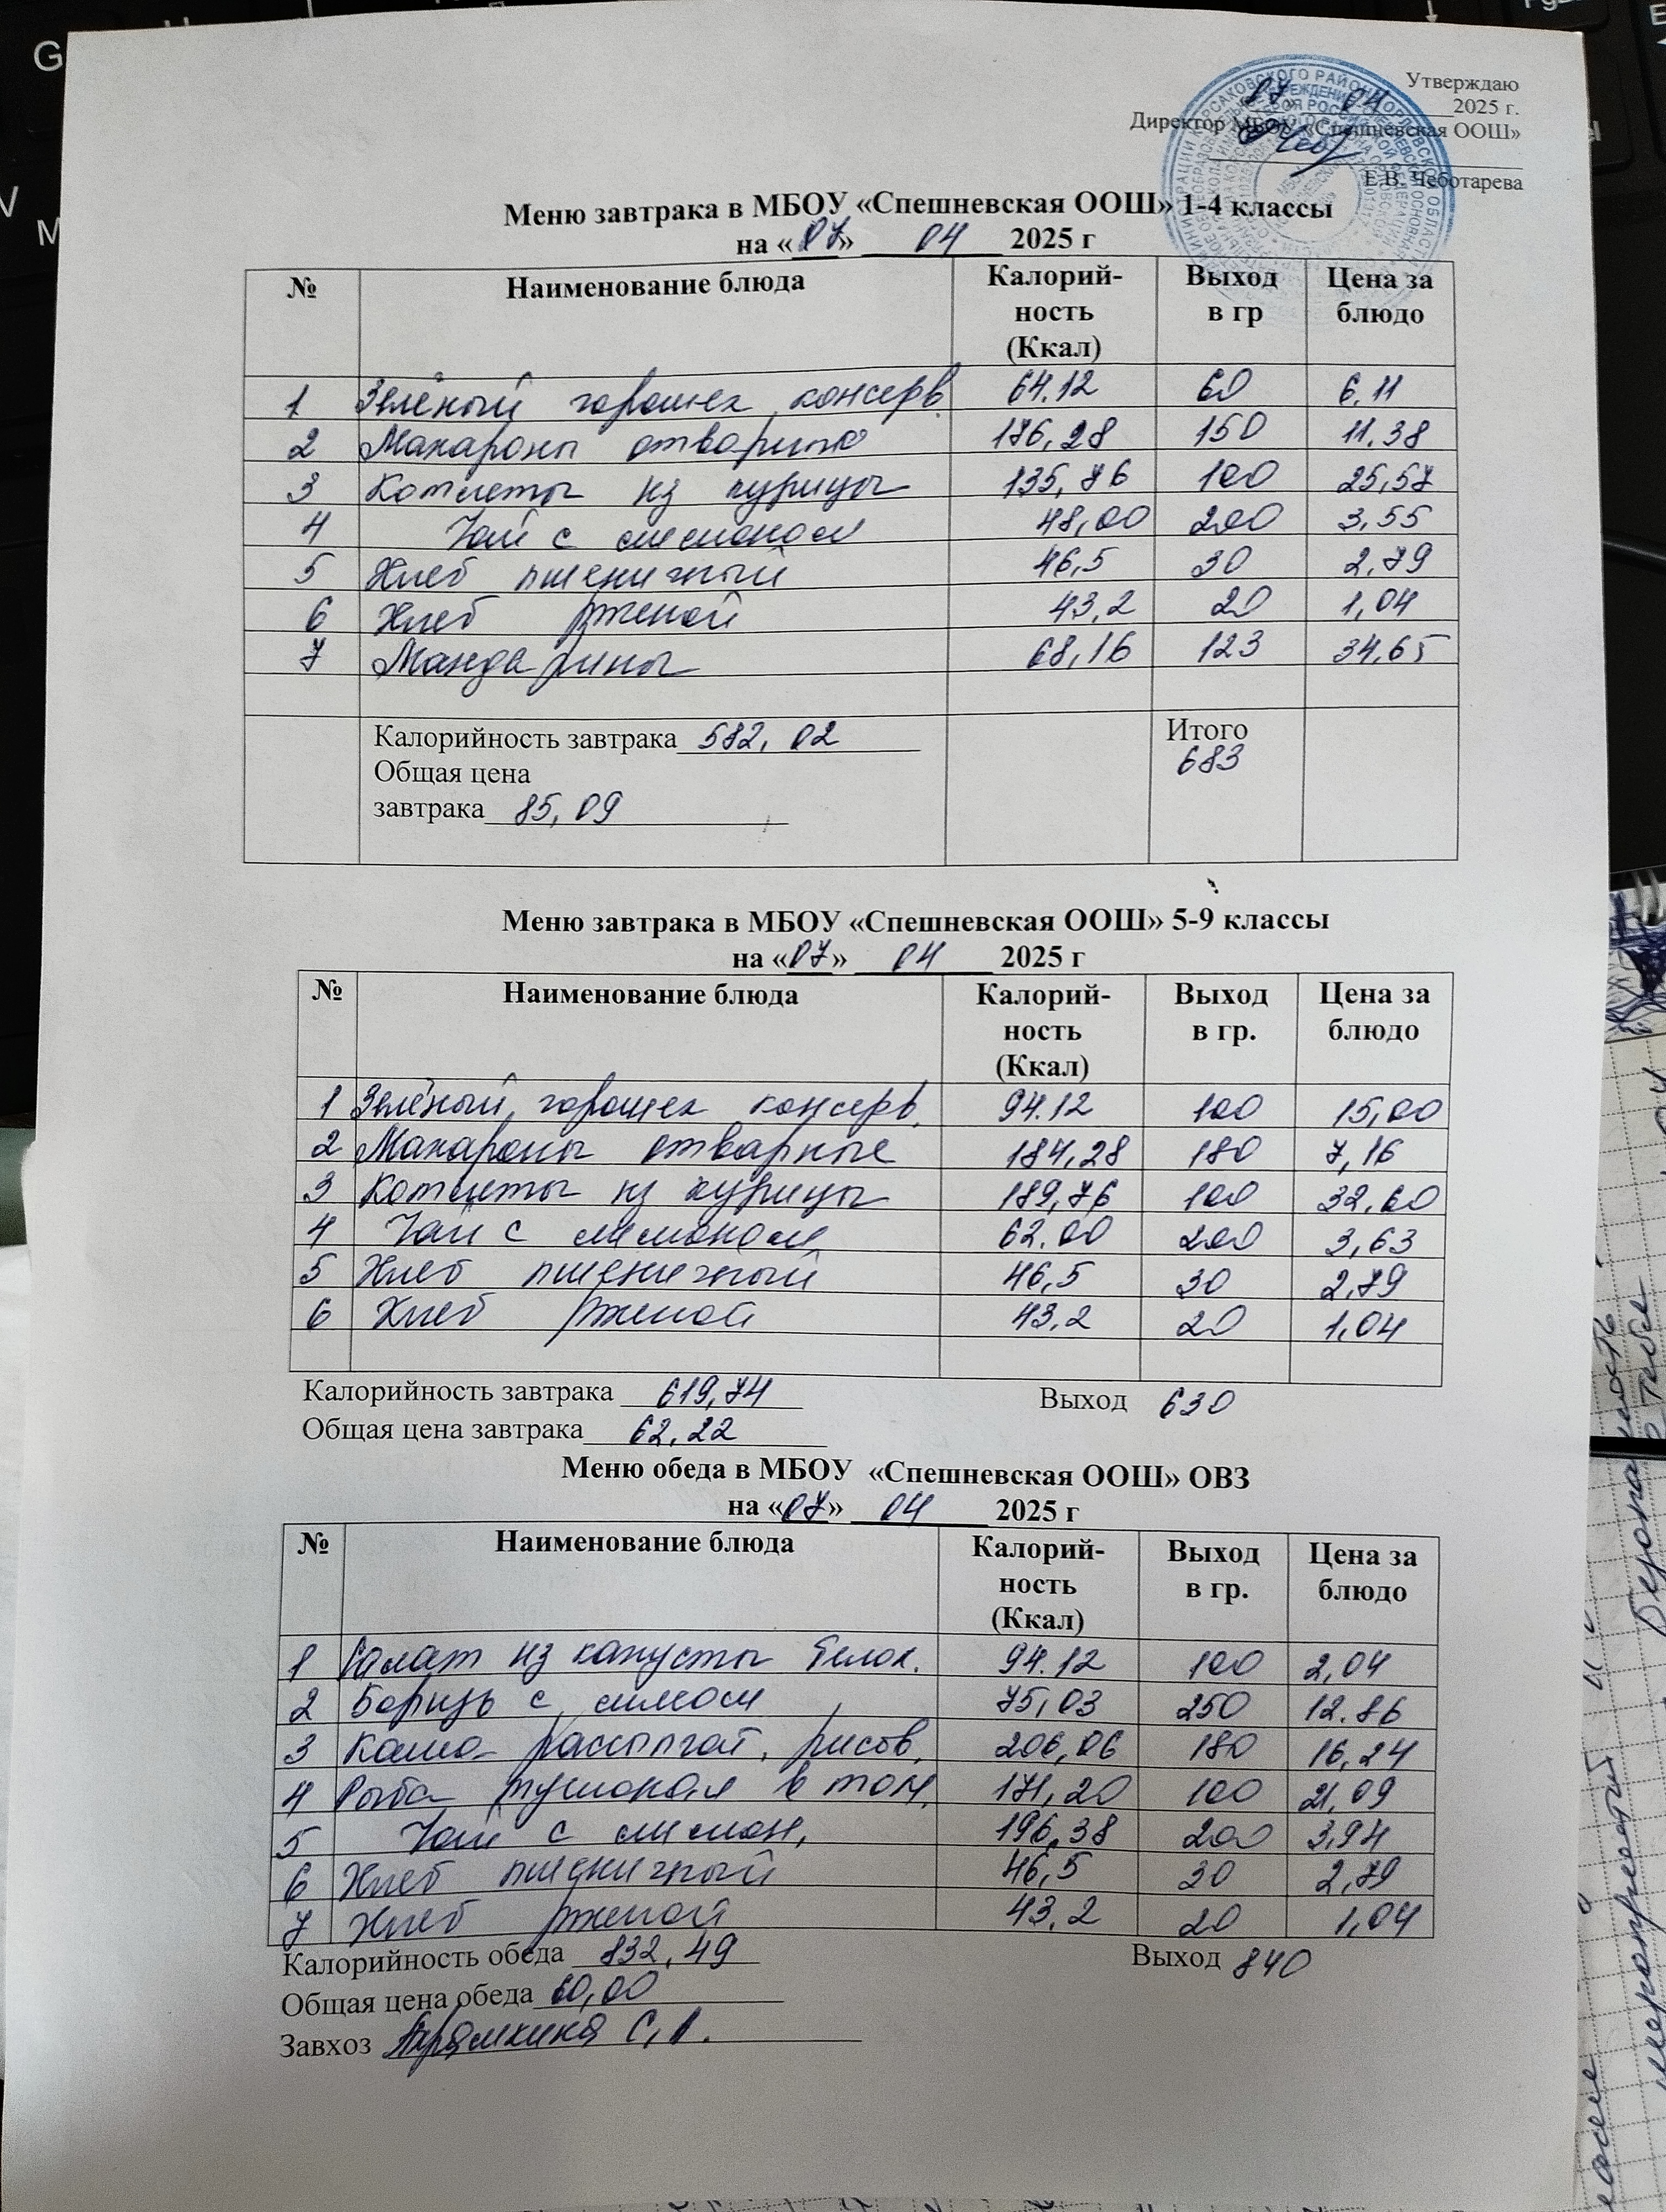 Утверждаю
07 04 2025 г.
Директор МБОУ «Спешневская ООШ»
Е.В. Чеботарева
Меню завтрака в МБОУ «Спешневская ООШ» 1-4 классы
на «07» 04 2025 г
№ Наименование блюда Калорий-ность (Ккал) Выход в гр Цена за блюдо
1 Зелёный горошек консерв. 64.12 60 6,11
2 Макароны отварные 176,28 150 11,38
3 Котлеты из курицы 135,76 100 25,57
4 Чай с лимоном 48,00 200 3,55
5 Хлеб пшеничный 46,5 30 2,79
6 Хлеб ржаной 43,2 20 1,04
7 Мандарины 68,16 123 34,65
Калорийность завтрака 582,02 Итого
683
Общая цена
завтрака 85,09
Меню завтрака в МБОУ «Спешневская ООШ» 5-9 классы
на «07» 04 2025 г
№ Наименование блюда Калорий-ность (Ккал) Выход в гр. Цена за блюдо
1 Зелёный горошек консерв. 94.12 100 15,00
2 Макароны отварные 184,28 180 7,16
3 Котлеты из курицы 189,76 100 32,60
4 Чай с лимоном 62.00 200 3,63
5 Хлеб пшеничный 46,5 30 2,79
6 Хлеб ржаной 43,2 20 1,04
Калорийность завтрака 619,74 Выход 630
Общая цена завтрака 62,22
Меню обеда в МБОУ «Спешневская ООШ» ОВЗ
на «07» 04 2025 г
№ Наименование блюда Калорий-ность (Ккал) Выход в гр. Цена за блюдо
1 Салат из капусты белок. 94.12 100 2,04
2 Борщ с мясом 75,03 250 12.86
3 Каша рассыпчат. рисов. 206,06 180 16,24
4 Рыба тушоная в том. 171,20 100 21,09
5 Чай с лимон, 196,38 200 3,94
6 Хлеб пшеничный 46,5 30 2,79
7 Хлеб ржаной 43,2 20 1,04
Калорийность обеда 832,49 Выход 840
Общая цена обеда 60,00
Завхоз С.А.